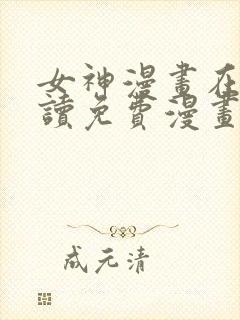 女神漫畫在
讀免費漫畫
成元清